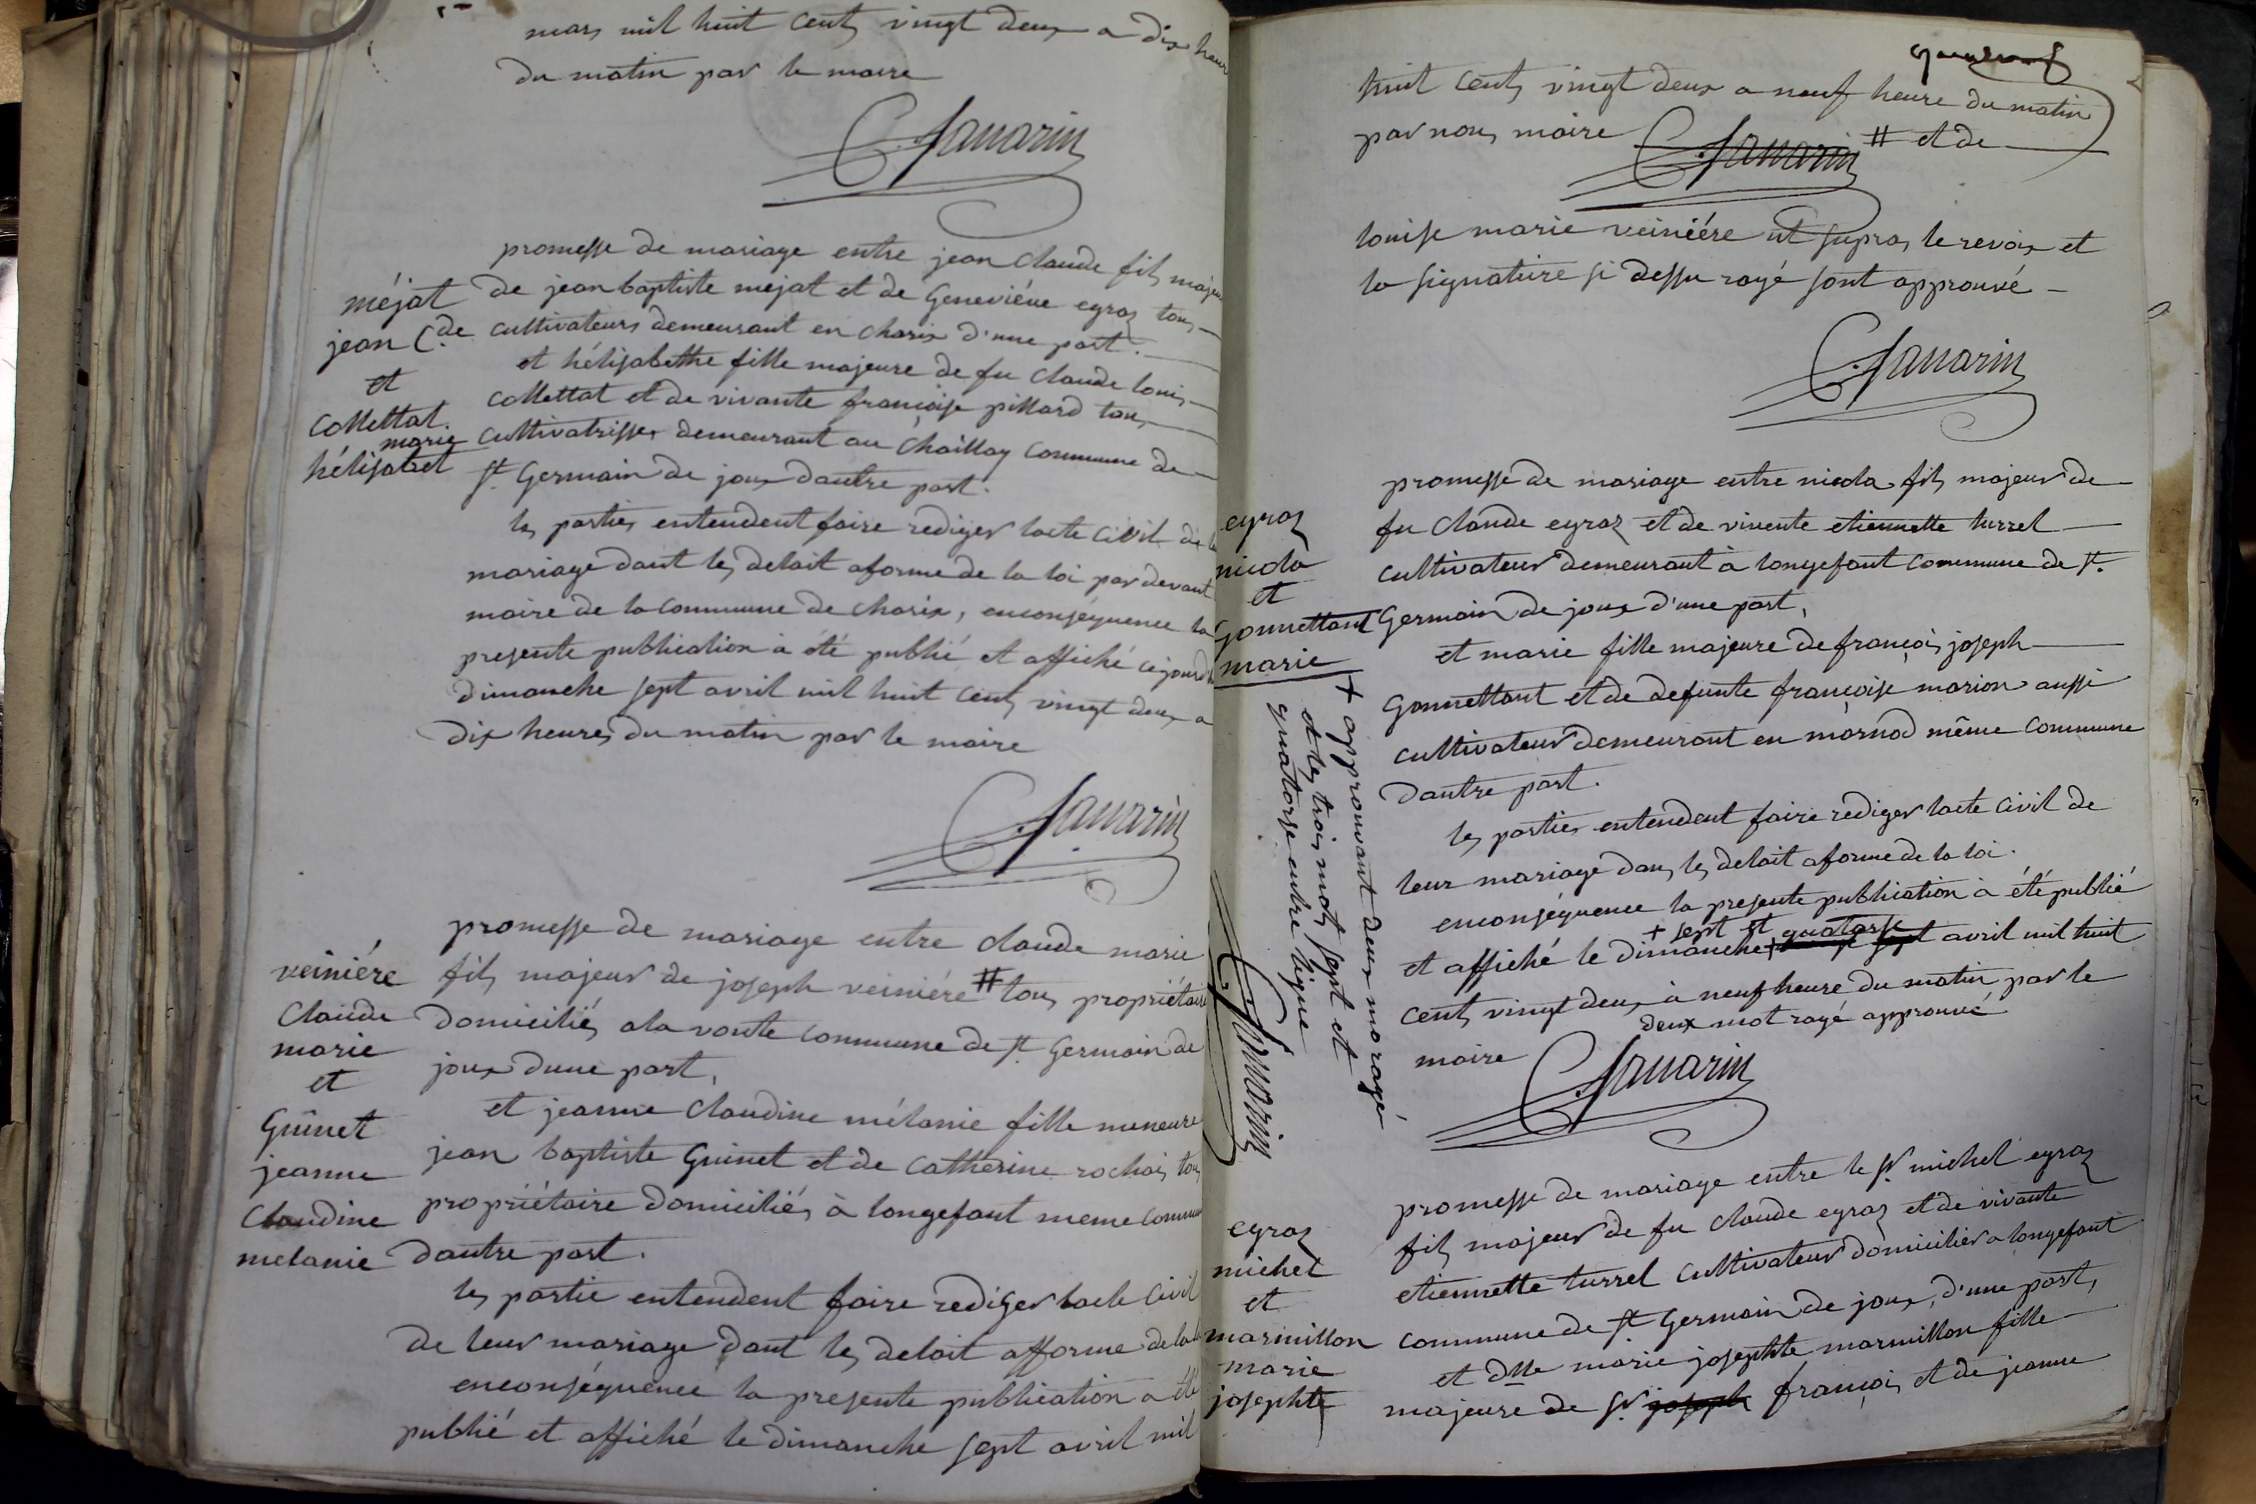 mars mil huit cents vingt deux a dix heur
du matin par le maire
C. Savarin
promesse de mariage entre jean claude fils majeur
méjat
jean C.de
et
Collettat
marie
hélisabet
de jean baptiste méjat et de Geneviéve egraz tous
cultivateurs demeurant en charix d'une part.
et hélisabethe fille majeure de fu claude louis
Collettat et de vivante françoise pillard tous
cultivatrisses demeurant au Chaillay Commune de
st Germain de joux dautre part.
les parties entendent faire rediger lacte civil de le
mariage dant les delait aforme de la loi par devant
maire de la Commune de charix, enconséquence la
presente publication à été publié et affiché cejourd
dimanche sept avril mil huit cents vingt deux a
dix heures du matin par le maire
C. Savarin
veiniére
Claude
marie
et
Guinet
jeanne
Claudine
melanie
promesse de mariage entre claude marie
fils majeur de joseph veiniére # tous propriétaire
domiciliés ala voute commune de st Germain de
joux dune part,
et jeanne Claudine mélanie fille meneure
jean baptiste Guinet et de Catherine rochais tous
propriétaire domiciliés à longefant meme commun
dautre part.
les partie entendent faire rediger lacte civil
de leur mariage dant les delait afforme de la
enconséquence la presente publication a été
publié et affiché le dimanche sept avril mil
huit cents vingt deux a neuf heure du matin
par nous maire C. Savarin # et de
louise marie veiniére ut supra, le revoix et
la signature si dessu rayé sont approuvé
C. Savarin
egraz
nicola
et
Gonnettant
marie
promesse de mariage entre nicola fils majeur de
fu claude egraz et de vivente etiennette turrel
cultivateur demeurant à longefant commune de st.
Germain de joux d'une part,
et marie fille majeure de françois joseph
Gonnettant et de defunte françoise marion aussi
cultivateur demeurant en mornod même commune
dautre part.
les parties entendent faire rediger lacte civil de
leur mariage dans les delait aforme de la loi.
enconséquence la presente publication à été publié
+ sept et quatorse
et affiché le dimanche + sept avril mil huit
cents vingt deux à neuf heure du matin par le
deux mot rayé approuvé
maire C. Savarin
+ approuvant deux mo rayé
et les trois mots sept et
quatorse entre ligne
C. Savarin
egraz
michel
et
marmillon
marie
josephte
promesse de mariage entre le sr. michel egraz
fils majeur de fu claude egraz et de vivante
etiennette turrel cultivateur domicilier a longefant
commune de st Germain de joux, d'une part,
et dlle marie josephte marmillon fille
majeure de sr. joseph françois et de jeanne